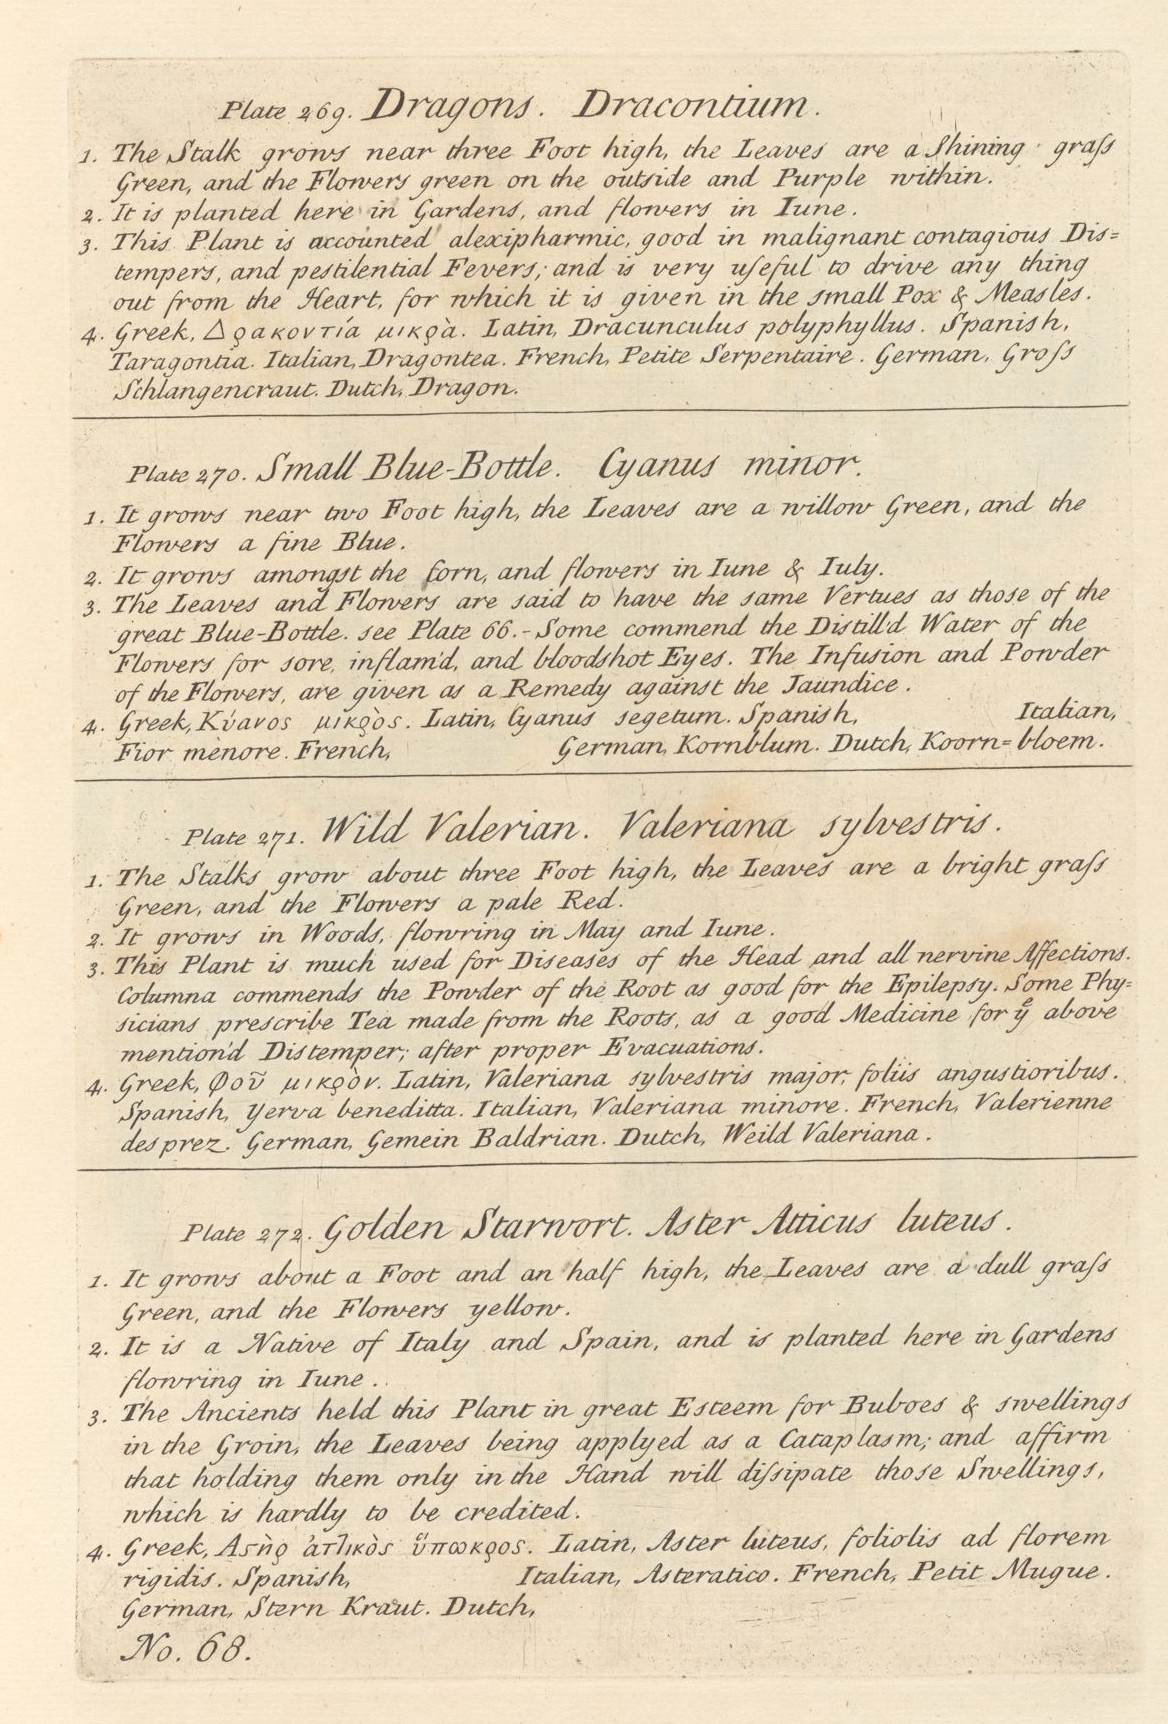 Plate 269. Dragons. Dracontium.
1. The Stalk grows near three Foot high, the Leaves are a Shining graſs
Green, and the Flowers green on the outside and Purple within.
2. It is planted here in Gardens, and flowers in Iune.
3. This Plant is accounted alexipharmic, good in malignant contagious Dis=
tempers, and pestilential Fevers; and is very uſeful to drive any thing
out from the Heart, for which it is given in the small Pox & Measles.
4. Greek, Δρακοντία μικρὰ. Latin, Dracunculus polyphyllus. Spanish,
Taragontia. Italian, Dragontea. French, Petite Serpentaire. German, Groſs
Schlangencraut. Dutch, Dragon.
Plate 270. Small Blue-Bottle. Cyanus minor.
1. It grows near two Foot high, the Leaves are a willow Green, and the
Flowers a fine Blue.
2. It grows amongst the Corn, and flowers in Iune & Iuly.
3. The Leaves and Flowers are said to have the same Vertues as those of the
great Blue-Bottle. see Plate 66.- Some commend the Distill'd Water of the
Flowers for sore, inflam'd, and bloodshot Eyes. The Infusion and Powder
of the Flowers, are given as a Remedy against the Jaundice.
4. Greek, Κύανος μικρὸς. Latin, Cyanus segetum. Spanish, Italian,
Fior menore. French, German, Kornblum. Dutch, Koorn=bloem.
Plate 271. Wild Valerian. Valeriana sylvestris.
1. The Stalks grow about three Foot high, the Leaves are a bright graſs
Green, and the Flowers a pale Red.
2. It grows in Woods, flowring in May and Iune.
3. This Plant is much used for Diseases of the Head and all nervine Affections.
Columna commends the Powder of the Root as good for the Epilepsy. Some Phy=
sicians prescribe Tea made from the Roots, as a good Medicine for yͤ above
mention'd Distemper; after proper Evacuations.
4. Greek, Φοῦ μικρὸν. Latin, Valeriana sylvestris major, foliis angustioribus.
Spanish, Yerva beneditta. Italian, Valeriana minore. French, Valerienne
des prez. German, Gemein Baldrian. Dutch, Weild Valeriana.
Plate 272. Golden Starwort. Aster Atticus luteus.
1. It grows about a Foot and an half high, the Leaves are a dull graſs
Green, and the Flowers yellow.
2. It is a Native of Italy and Spain, and is planted here in Gardens
flowring in Iune.
3. The Ancients held this Plant in great Esteem for Buboes & swellings
in the Groin, the Leaves being applyed as a Cataplasm; and affirm
that holding them only in the Hand will diſsipate those Swellings,
which is hardly to be credited.
4. Greek, Αϛὴρ ἀτλικὸς ὕπωκρος. Latin, Aster luteus, foliolis ad florem
rigidis. Spanish, Italian, Asteratico. French, Petit Mugue.
German, Stern Kraut. Dutch,
No. 68.